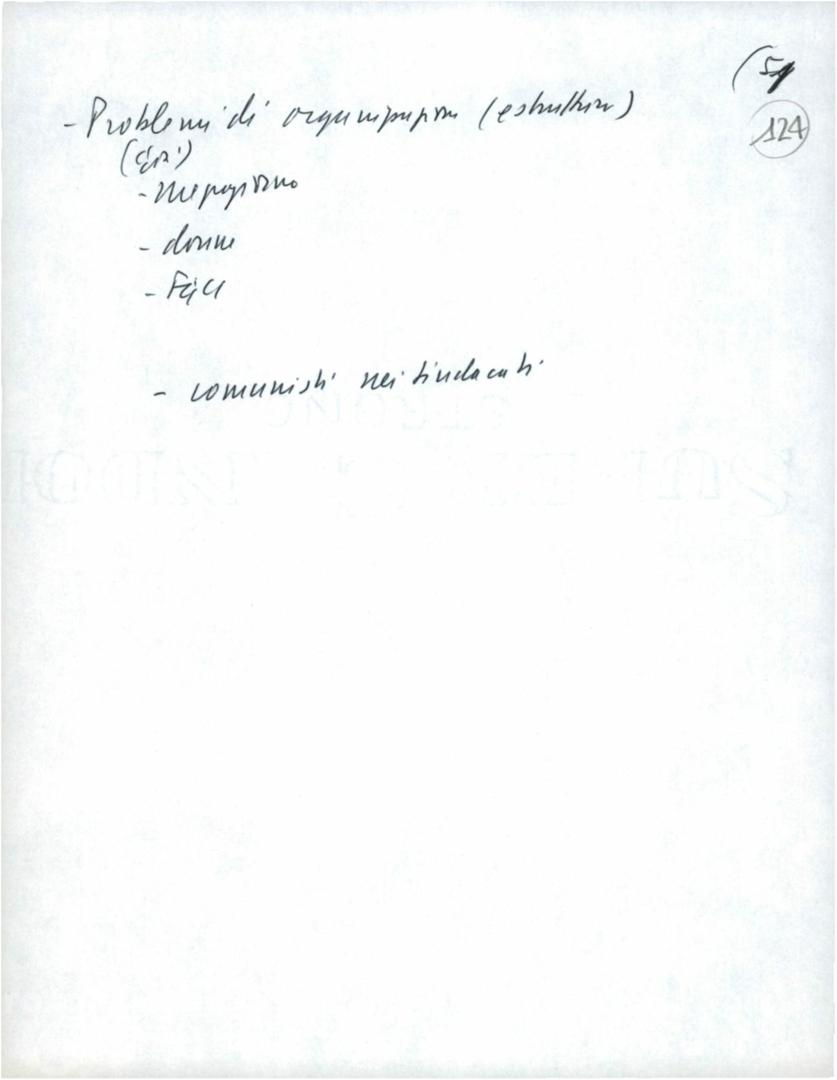 (5
124
- Problemi di organizzazione (e struttura)
- Mezzogiorno
- donne
- FGCI
- comunisti nei sindacati